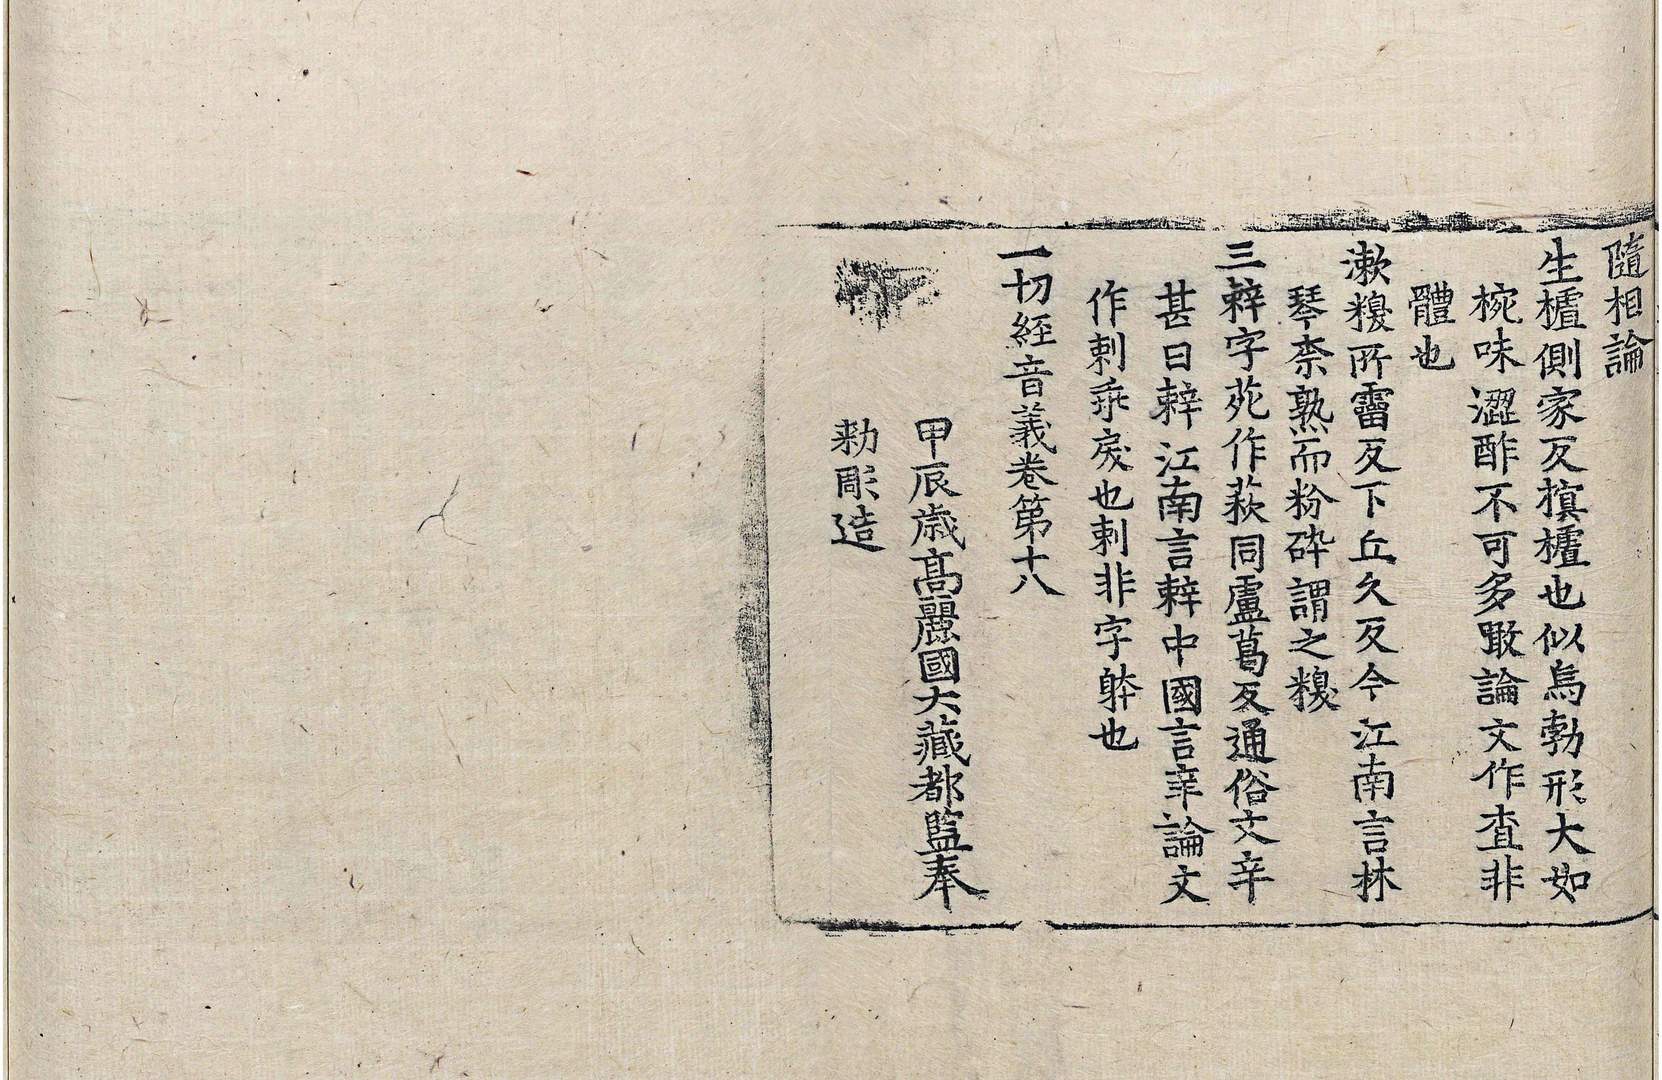 隨相論
生樝側家反樝也似烏勃形大如
椀味澀酢不可多噉論文作査非
體也
漱糗所霤反下丘久反今江南言林
琴柰熟而粉碎謂之糗
三辢字苑作䔾同盧葛反通俗文辛
甚曰辢江南言辢中國言辛論文
作剌乖戾也剌非字體也
一切經音義卷第十八
甲辰歲高麗國大藏都監奉
勅彫造